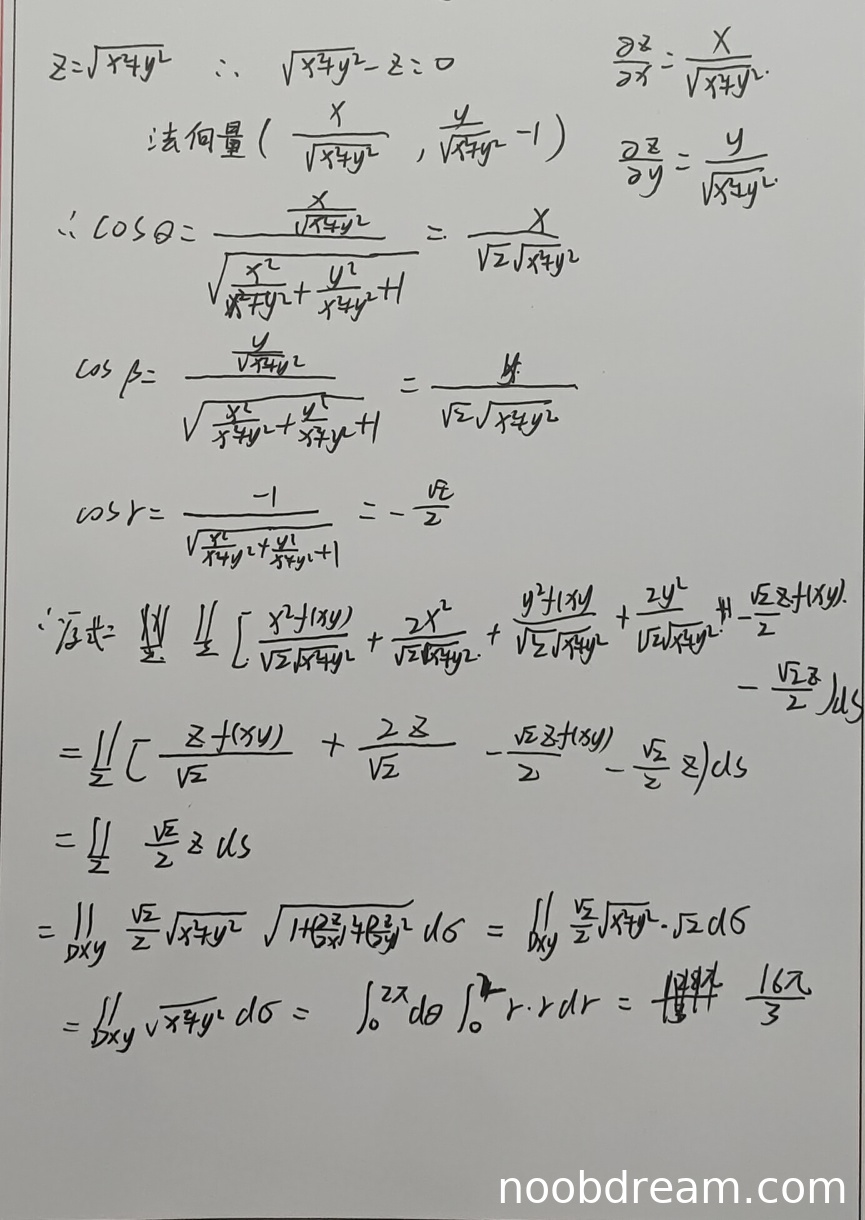 z=√(x²+y²) ∴ √(x²+y²)-z=0 ∂z/∂x = x/√(x²+y²).
法向量( x/√(x²+y²) , y/√(x²+y²) -1) ∂z/∂y = y/√(x²+y²).
∴ cosθ= (x/√(x²+y²))/√(x²/(x²+y²) + y²/(x²+y²) +1) = x/(√2√(x²+y²))
cos β= (y/√(x²+y²))/√(x²/(x²+y²) + y²/(x²+y²) +1) = y/(√2√(x²+y²))
cos r= -1/√(x²/(x²+y²) + y²/(x²+y²) +1) = -√2/2
∴原式= ∬_Σ [ x²f(xy)/(√2√(x²+y²)) + 2x²/(√2√(x²+y²)) + y²f(xy)/(√2√(x²+y²)) + 2y²/(√2√(x²+y²)) - √2/2 zf(xy).
- √2z/2 )ds
= ∬_Σ [ zf(xy)/√2 + 2z/√2 - √2zf(xy)/2 - √2/2 z)ds
= ∬_Σ √2/2 z ds
= ∬_Dxy √2/2 √(x²+y²) √(1+(∂z/∂x)²+(∂z/∂y)²) dσ = ∬_Dxy √2/2 √(x²+y²)·√2dσ
= ∬_Dxy √(x²+y²) dσ = ∫₀^2π dθ ∫₀^2 r·rdr = 16π/3
noobdream.com